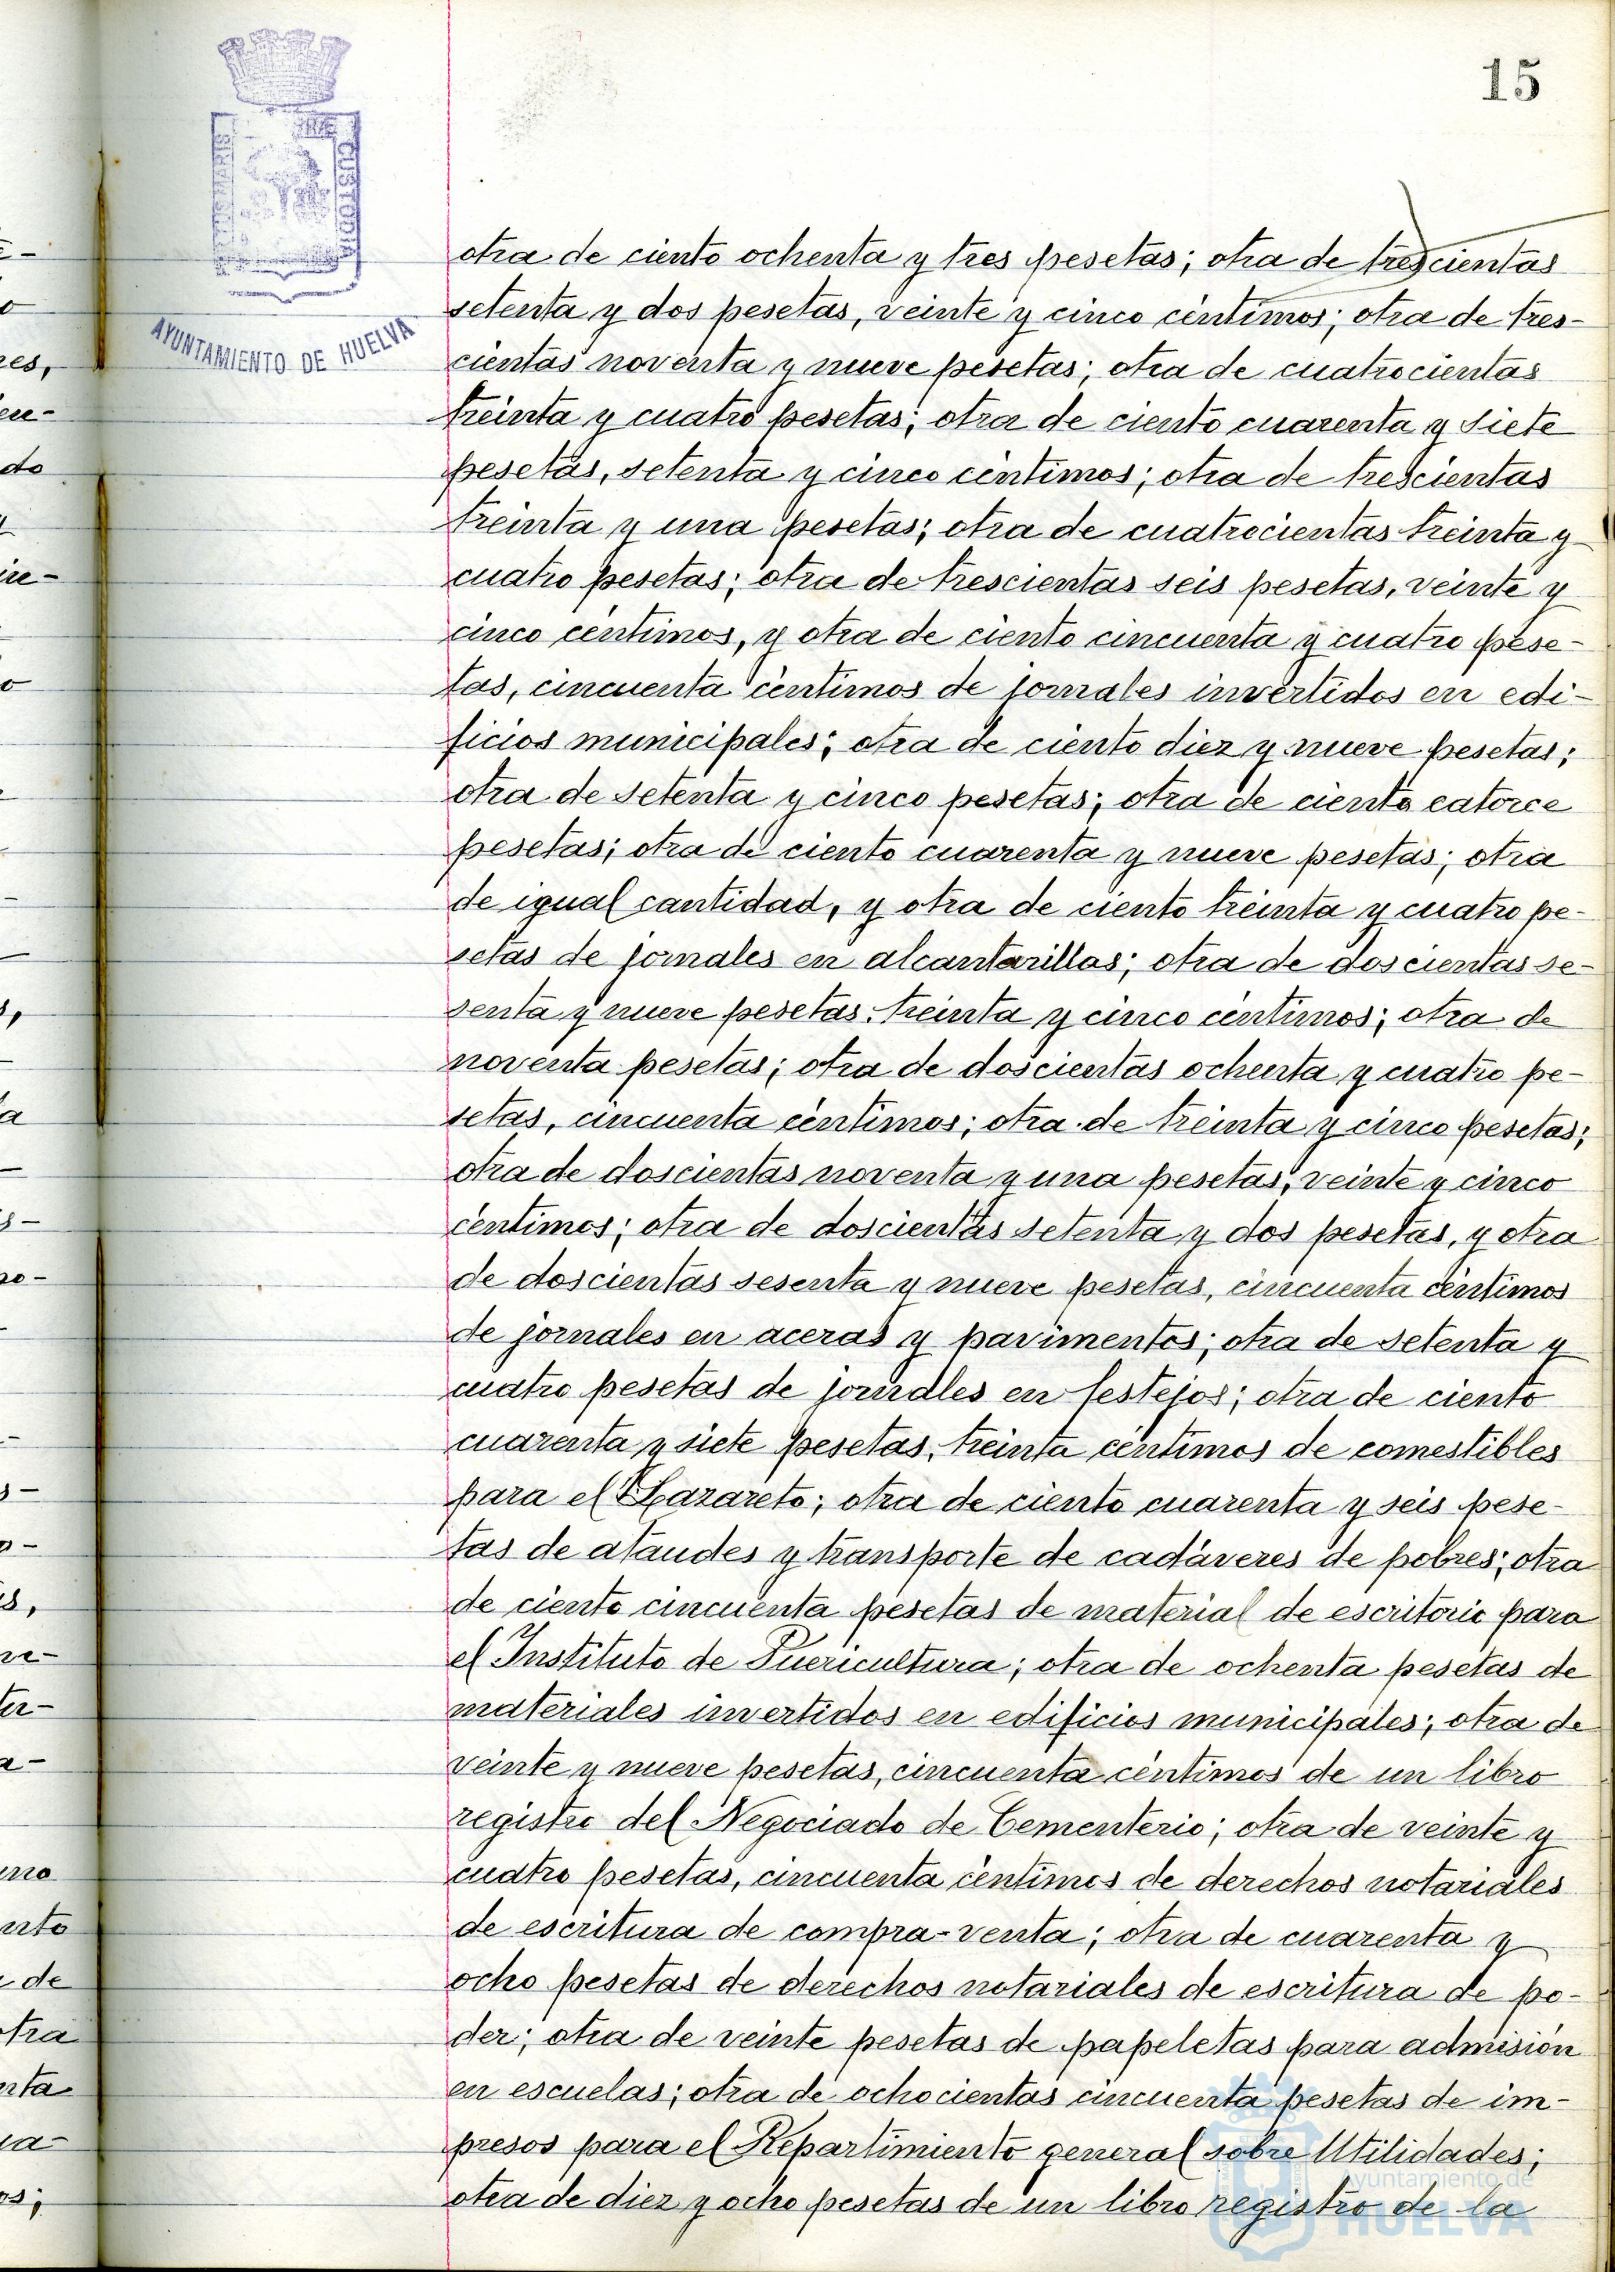 15
PORTUS MARIS
CUSTODIA
AYUNTAMIENTO DE HUELVA
otra de ciento ochenta y tres pesetas; otra de trescientas
setenta y dos pesetas, veinte y cinco céntimos; otra de tres-
cientas noventa y nueve pesetas; otra de cuatrocientas
treinta y cuatro pesetas; otra de ciento cuarenta y siete
pesetas, setenta y cinco céntimos; otra de trescientas
treinta y una pesetas; otra de cuatrocientas treinta y
cuatro pesetas; otra de trescientas seis pesetas, veinte y
cinco céntimos, y otra de ciento cincuenta y cuatro pese-
tas, cincuenta céntimos de jornales invertidos en edi-
ficios municipales; otra de ciento diez y nueve pesetas;
otra de setenta y cinco pesetas; otra de ciento catorce
pesetas; otra de ciento cuarenta y nueve pesetas; otra
de igual cantidad, y otra de ciento treinta y cuatro pe-
setas de jornales en alcantarillas; otra de doscientas se-
senta y nueve pesetas, treinta y cinco céntimos; otra de
noventa pesetas; otra de doscientas ochenta y cuatro pe-
setas, cincuenta céntimos; otra de treinta y cinco pesetas;
otra de doscientas noventa y una pesetas, veinte y cinco
céntimos; otra de doscientas setenta y dos pesetas, y otra
de doscientas sesenta y nueve pesetas, cincuenta céntimos
de jornales en aceras y pavimentos; otra de setenta y
cuatro pesetas de jornales en festejos; otra de ciento
cuarenta y siete pesetas, treinta céntimos de comestibles
para el Lazareto; otra de ciento cuarenta y seis pese-
tas de ataudes y transporte de cadáveres de pobres; otra
de ciento cincuenta pesetas de material de escritorio para
el Instituto de Puericultura; otra de ochenta pesetas de
materiales invertidos en edificios municipales; otra de
veinte y nueve pesetas, cincuenta céntimos de un libro
registro del Negociado de Cementerio; otra de veinte y
cuatro pesetas, cincuenta céntimos de derechos notariales
de escritura de compra-venta; otra de cuarenta y
ocho pesetas de derechos notariales de escritura de po-
der; otra de veinte pesetas de papeletas para admisión
en escuelas; otra de ochocientas cincuenta pesetas de im-
presos para el Repartimiento general sobre Utilidades;
otra de diez y ocho pesetas de un libro registro de la
Ayuntamiento de
HUELVA